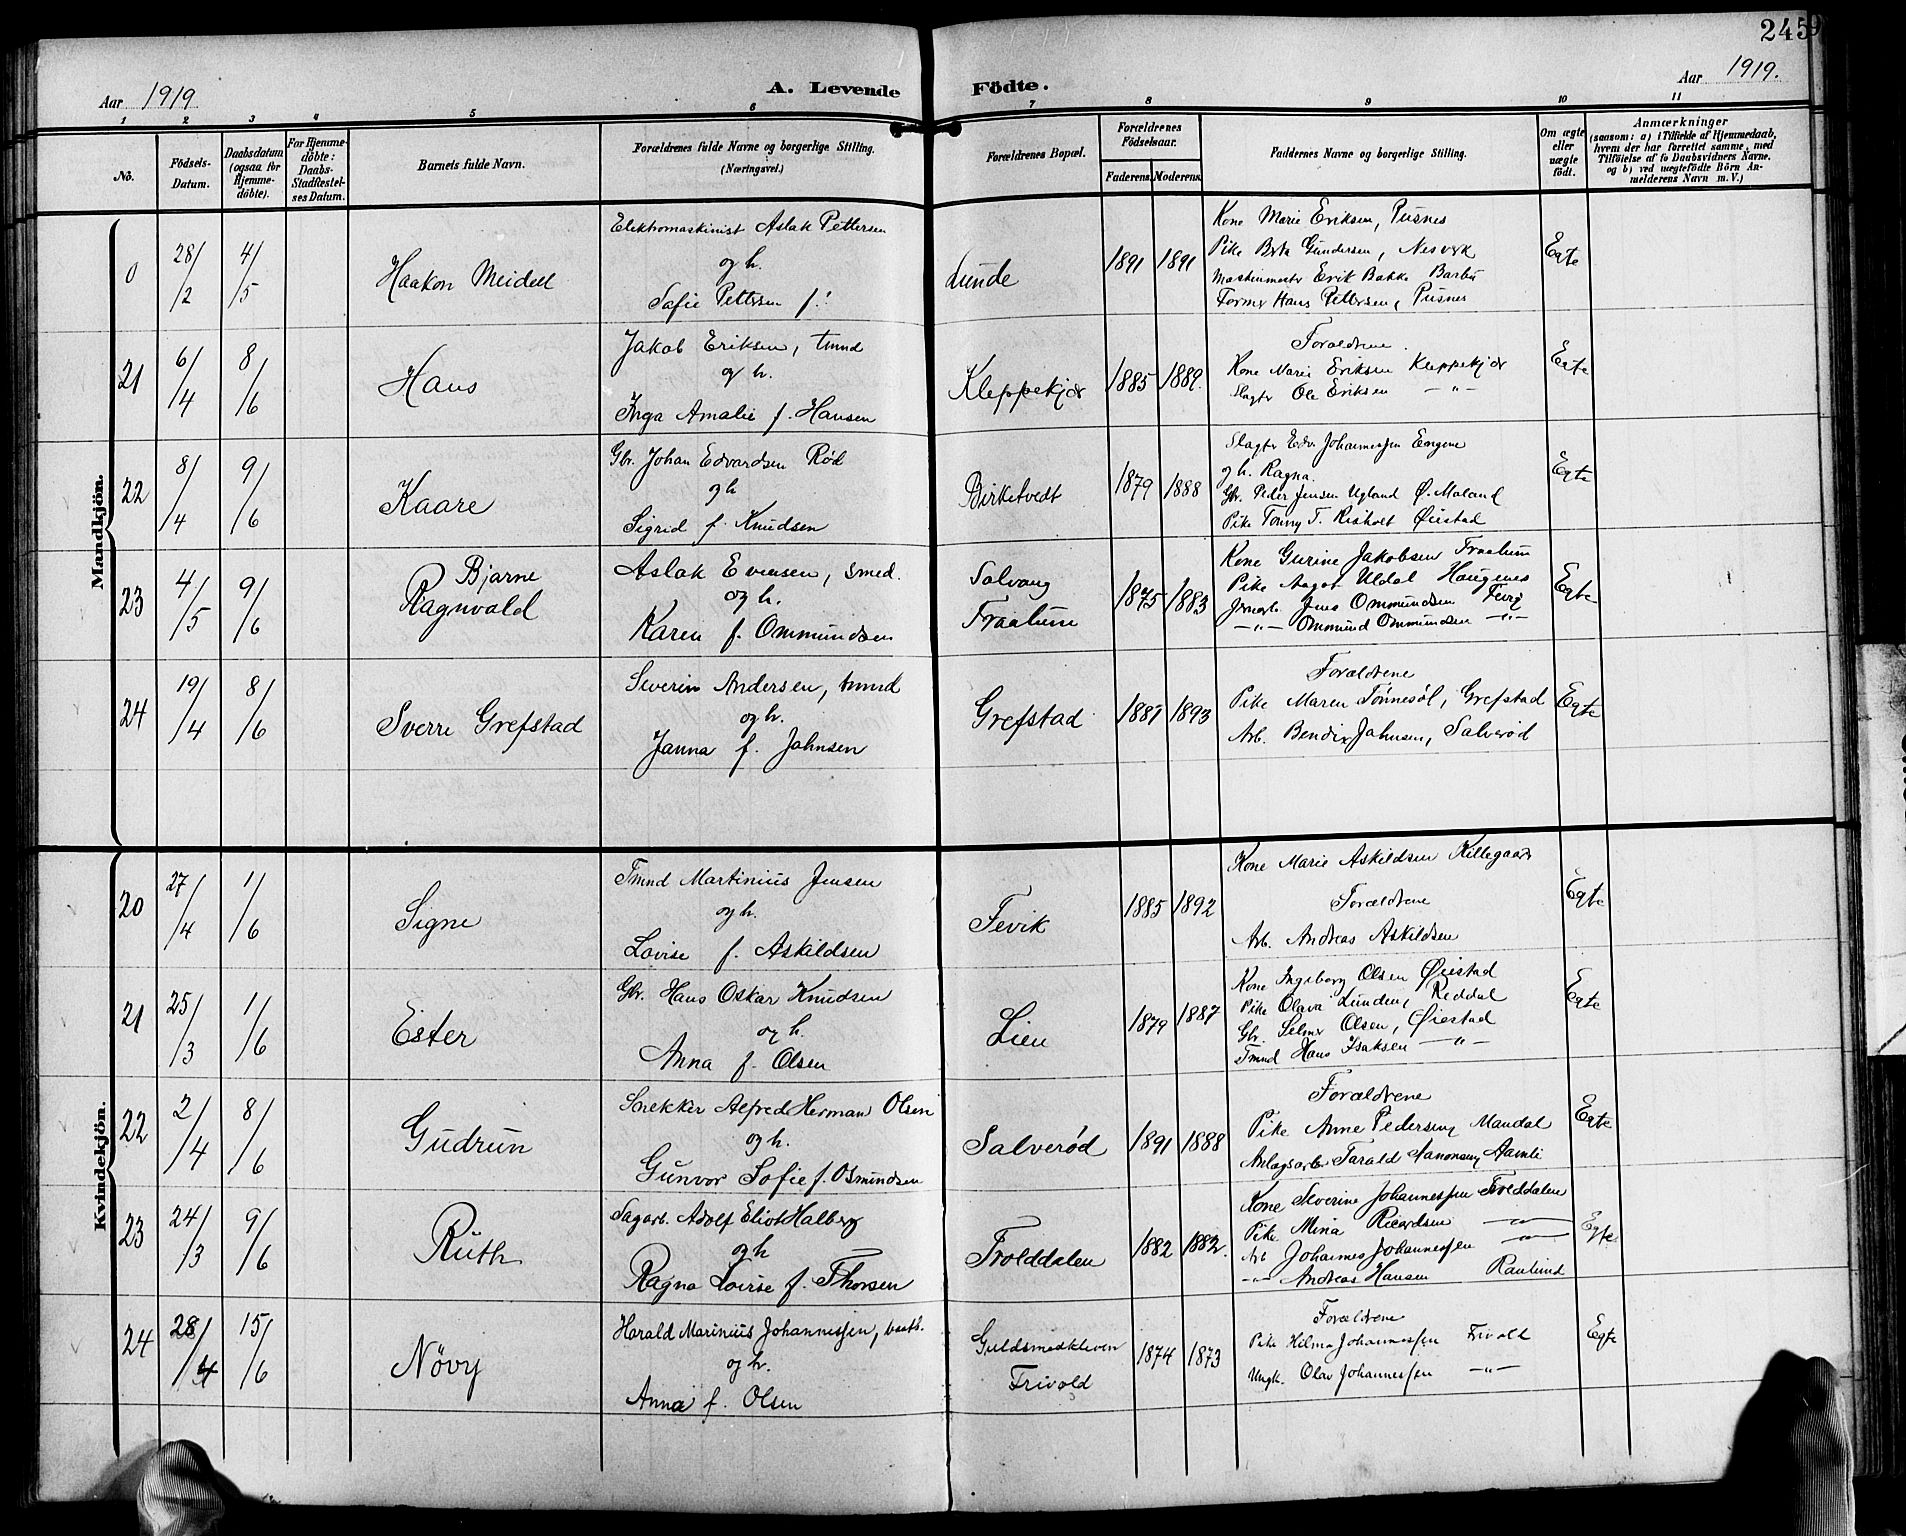 2459
Aar 1919
A. Levende Födte.
Aar 1919.
1 2 3 4 5 6 7 8 9 10 11
No.
Födsels-Datum.
Daabsdatum (ogsaa for Hjemme-döbte).
For Hjemme-döbte: Daabs-Stadfæstel-ses Datum.
Barnets fulde Navn.
Forældrenes fulde Navne og borgerlige Stilling. (Næringsvei.)
Forældrenes Bopæl.
Forældrenes Födselsaar.
Faderens. Moderens.
Faddernes Navne og borgerlige Stilling.
Om ægte eller uægte födt.
Anmærkninger
(saasom: a) i Tilfælde af Hjemmedaab,
hvem der har forrettet samme, med
Tilföielse af to Daabsvidners Navne,
og b) ved uægtefödte Börn An-
melderens Navn m. V.)
Mandkjön.
0 28/2 4/5 Haakon Meidell
Elektromaskinist Aslak Pettersen
og h.
Sofie Pettersen f.!
Lunde 1891 1891
Kone Marie Eriksen, Pusnes
Pike Berta Gundersen, Nesverk
Maskinmester Erik Bakke Barbu
Former Hans Pettersen, Pusnes
Egte
21 6/4 8/6 Hans
Jakob Eriksen, tmnd
og h.
Inga Amalie f. Hansen
Kleppekjær 1885 1889.
Forældrene.
Kone Marie Eriksen Kleppekjær
Slagter Ole Eriksen —"—
Egte
22 8/4 9/6 Kaare
Gbr. Johan Edvardsen Rød
og h
Sigrid f. Knudsen
Birketvedt 1879 1888
Slagter Edv. Johannessen Engene
og h. Ragna.
Gbr. Peder Jensen Ugland Ø. Moland
Pike Tomy T. Risholt Øiestad
Egte
23 4/5 9/6 Bjarne
Ragnvald
Aslak Evensen, smed.
og h.
Karen f. Ommundsen
Solvang
Fraalum 1875 1883
Kone Gurine Jakobsen Fraalum
Pike Aagot Uldal Haugenes
Jernarb. Jens Ommundsen Fevig
—"— Ommund Ommundsen —"—
Egte
24 19/4 8/6 Sverre Grefstad
Severin Andersen, tmnd
og h.
Janna f. Jahnsen
Grefstad 1887 1893
Forældrene
Pike Maren Tønnesøl, Grefstad
Arb. Bendix Jahnsen, Salverød
Egte
Kvindekjön.
20 27/4 1/6 Signe
Tmnd Martinius Jensen
og h.
Lovise f. Askildsen
Fevik 1885 1892
Kone Marie Askildsen Killegaard
Forældrene
Arb. Andreas Askildsen
Egte
21 25/3 1/6 Ester
Gbr. Hans Oskar Knudsen
og h.
Anna f. Olsen
Lien 1879 1887
Kone Ingeborg Olsen Øiestad
Pike Olava Lunden, Reddal
Gbr. Selmer Olsen, Øiestad
Tmnd Hans Isaksen —"—
Egte
22 2/4 8/6 Gudrun
Snekker Alfred Herman Olsen
og h.
Gunvor Sofie f. Osmundsen
Salverød 1891 1888
Forældrene
Pike Anne Pedersen, Mandal
Anlagsarb. Tarald Aanonsen, Aamli
Egte
23 24/3 9/6 Ruth
Sagarb. Adolf Eliot Halberg
og h
Ragna Lovise f. Thorsen
Trolddalen 1882 1882.
Kone Severine Johannessen Trolddalen
Pike Mina Ricardsen —"—
Arb Johannes Johannessen —"—
—"— Andreas Hansen Ranlund
Egte
24 28/4 15/6 Nøvy
Harald Marinius Johannessen, baatb.
og h.
Anna f. Olsen
Guldsmedkleven
Frivold 1874 1873
Forældrene
Pike Hilma Johannessen Frivold
Ungk. Olav Johannessen —"—
Egte